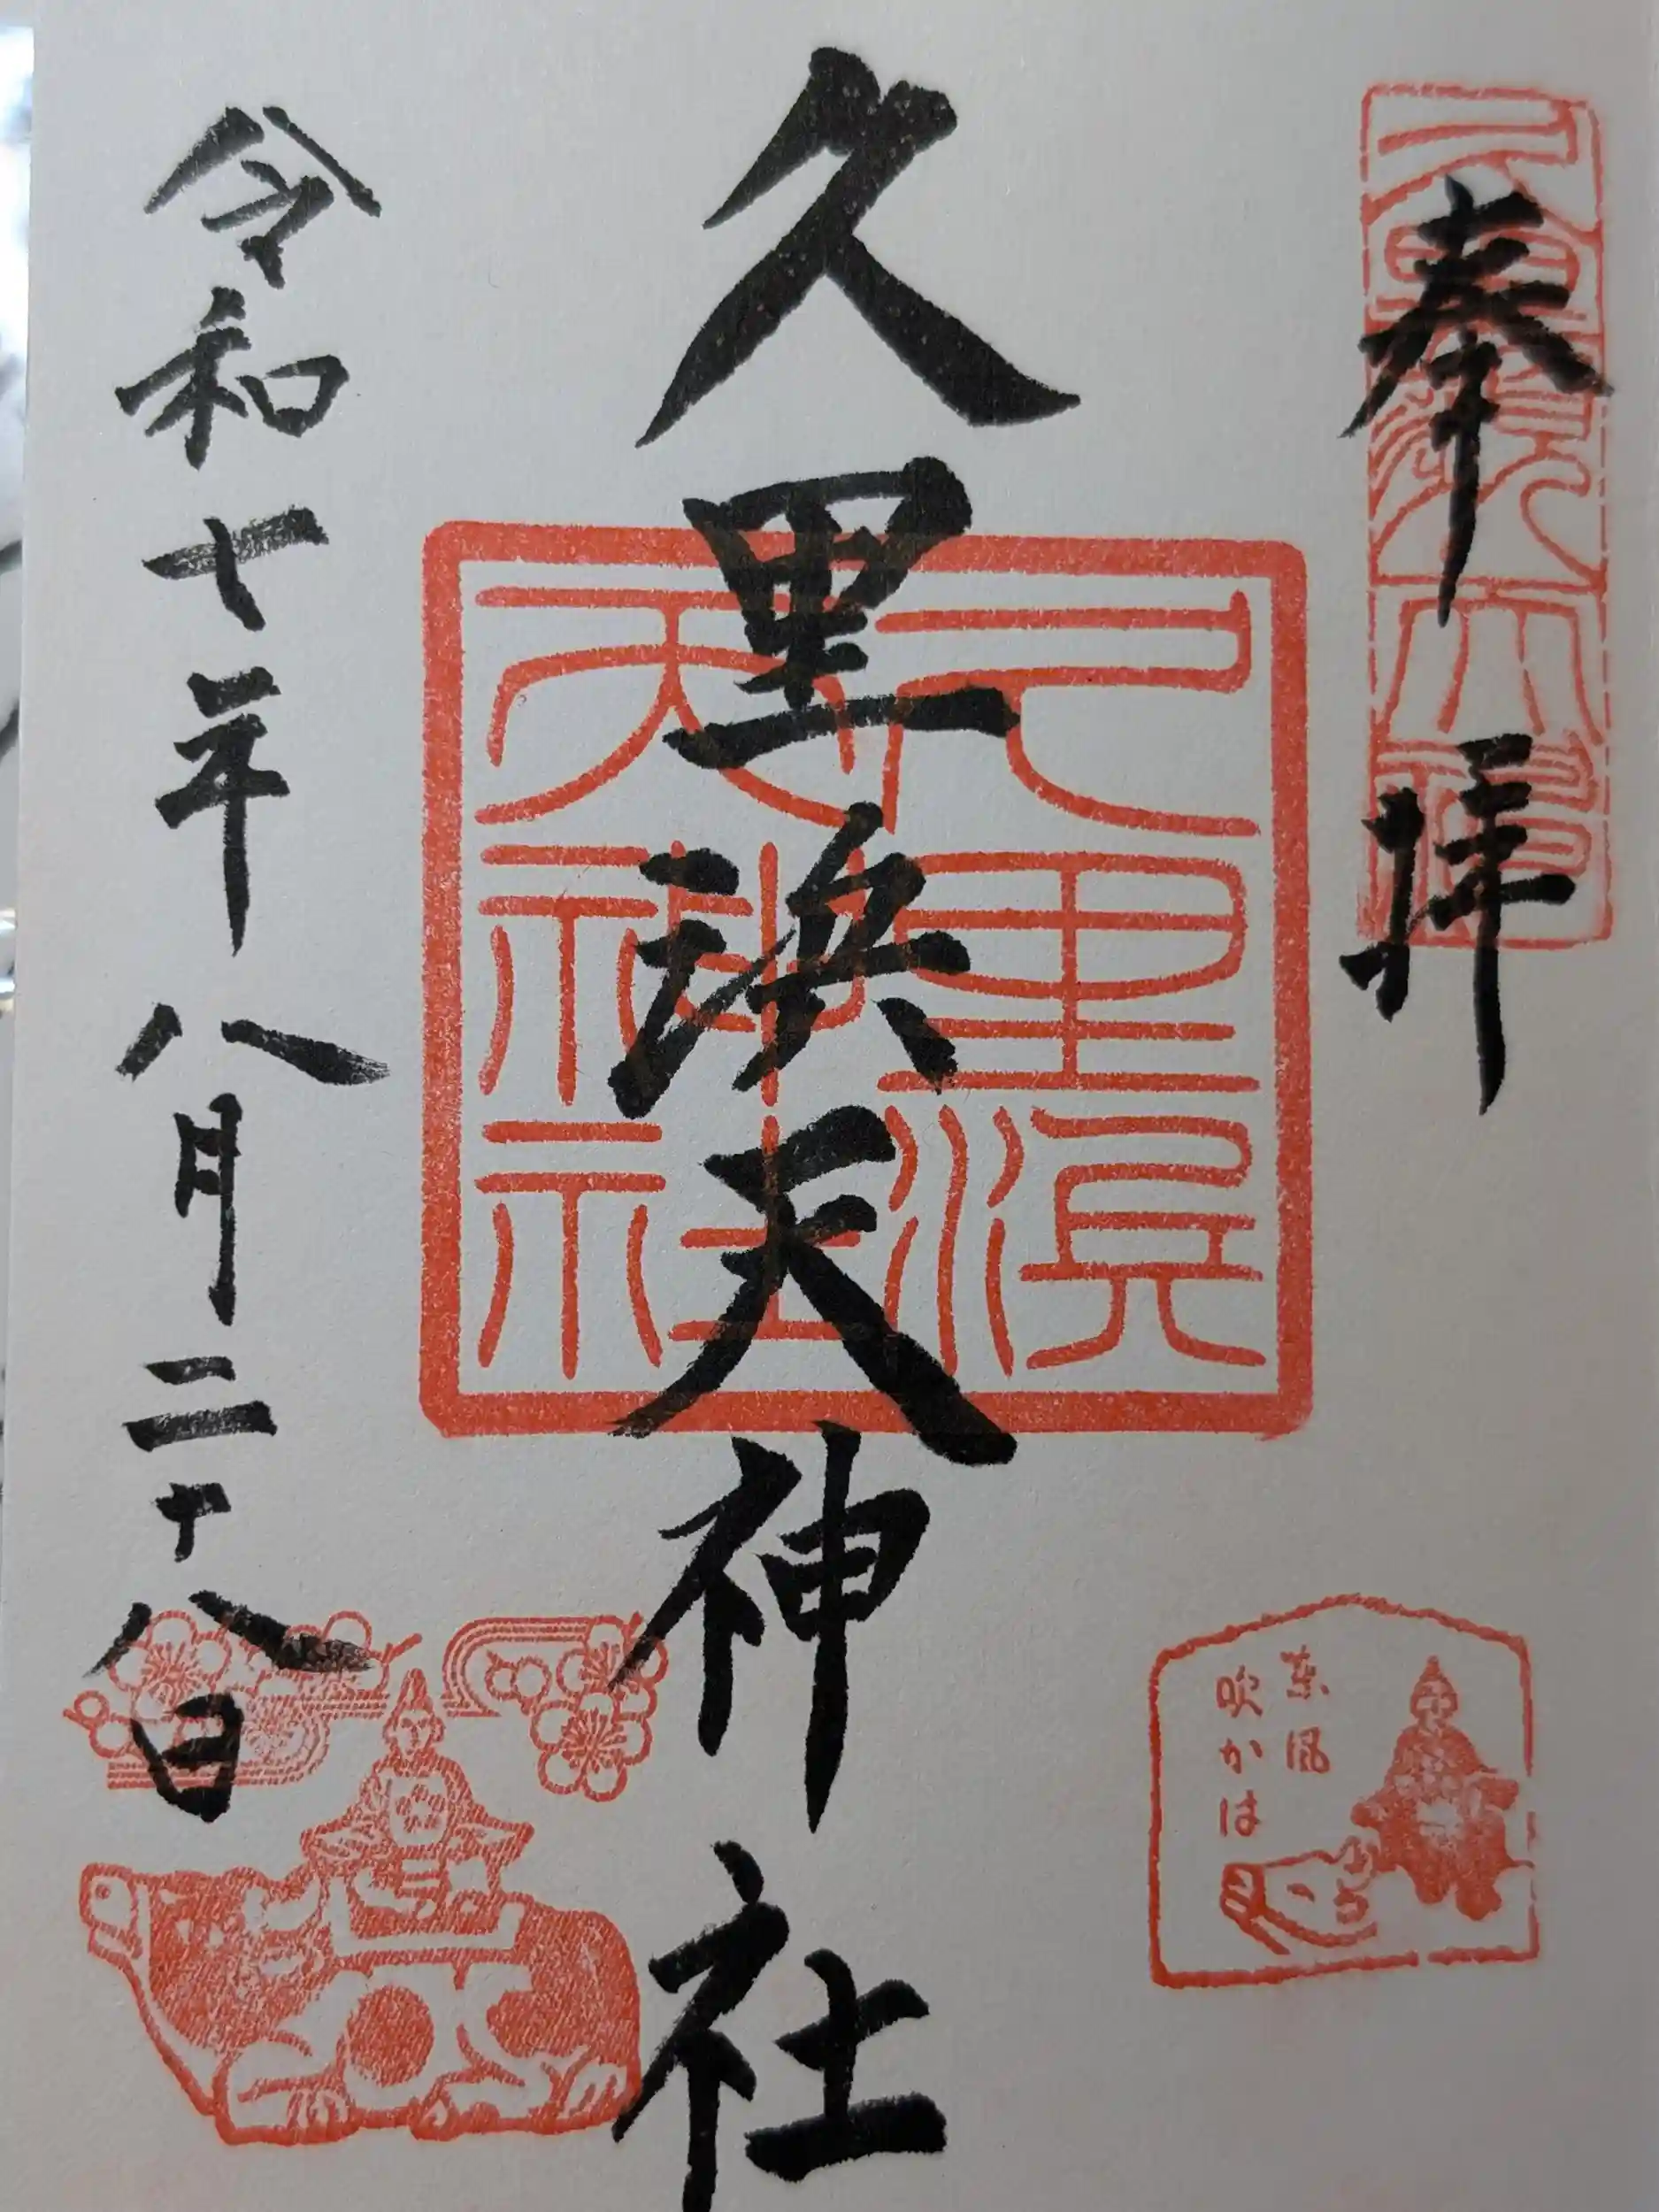 奉拝
久里浜天神社
久里浜
天神社
令和七年八月二十八日
東風
吹かは